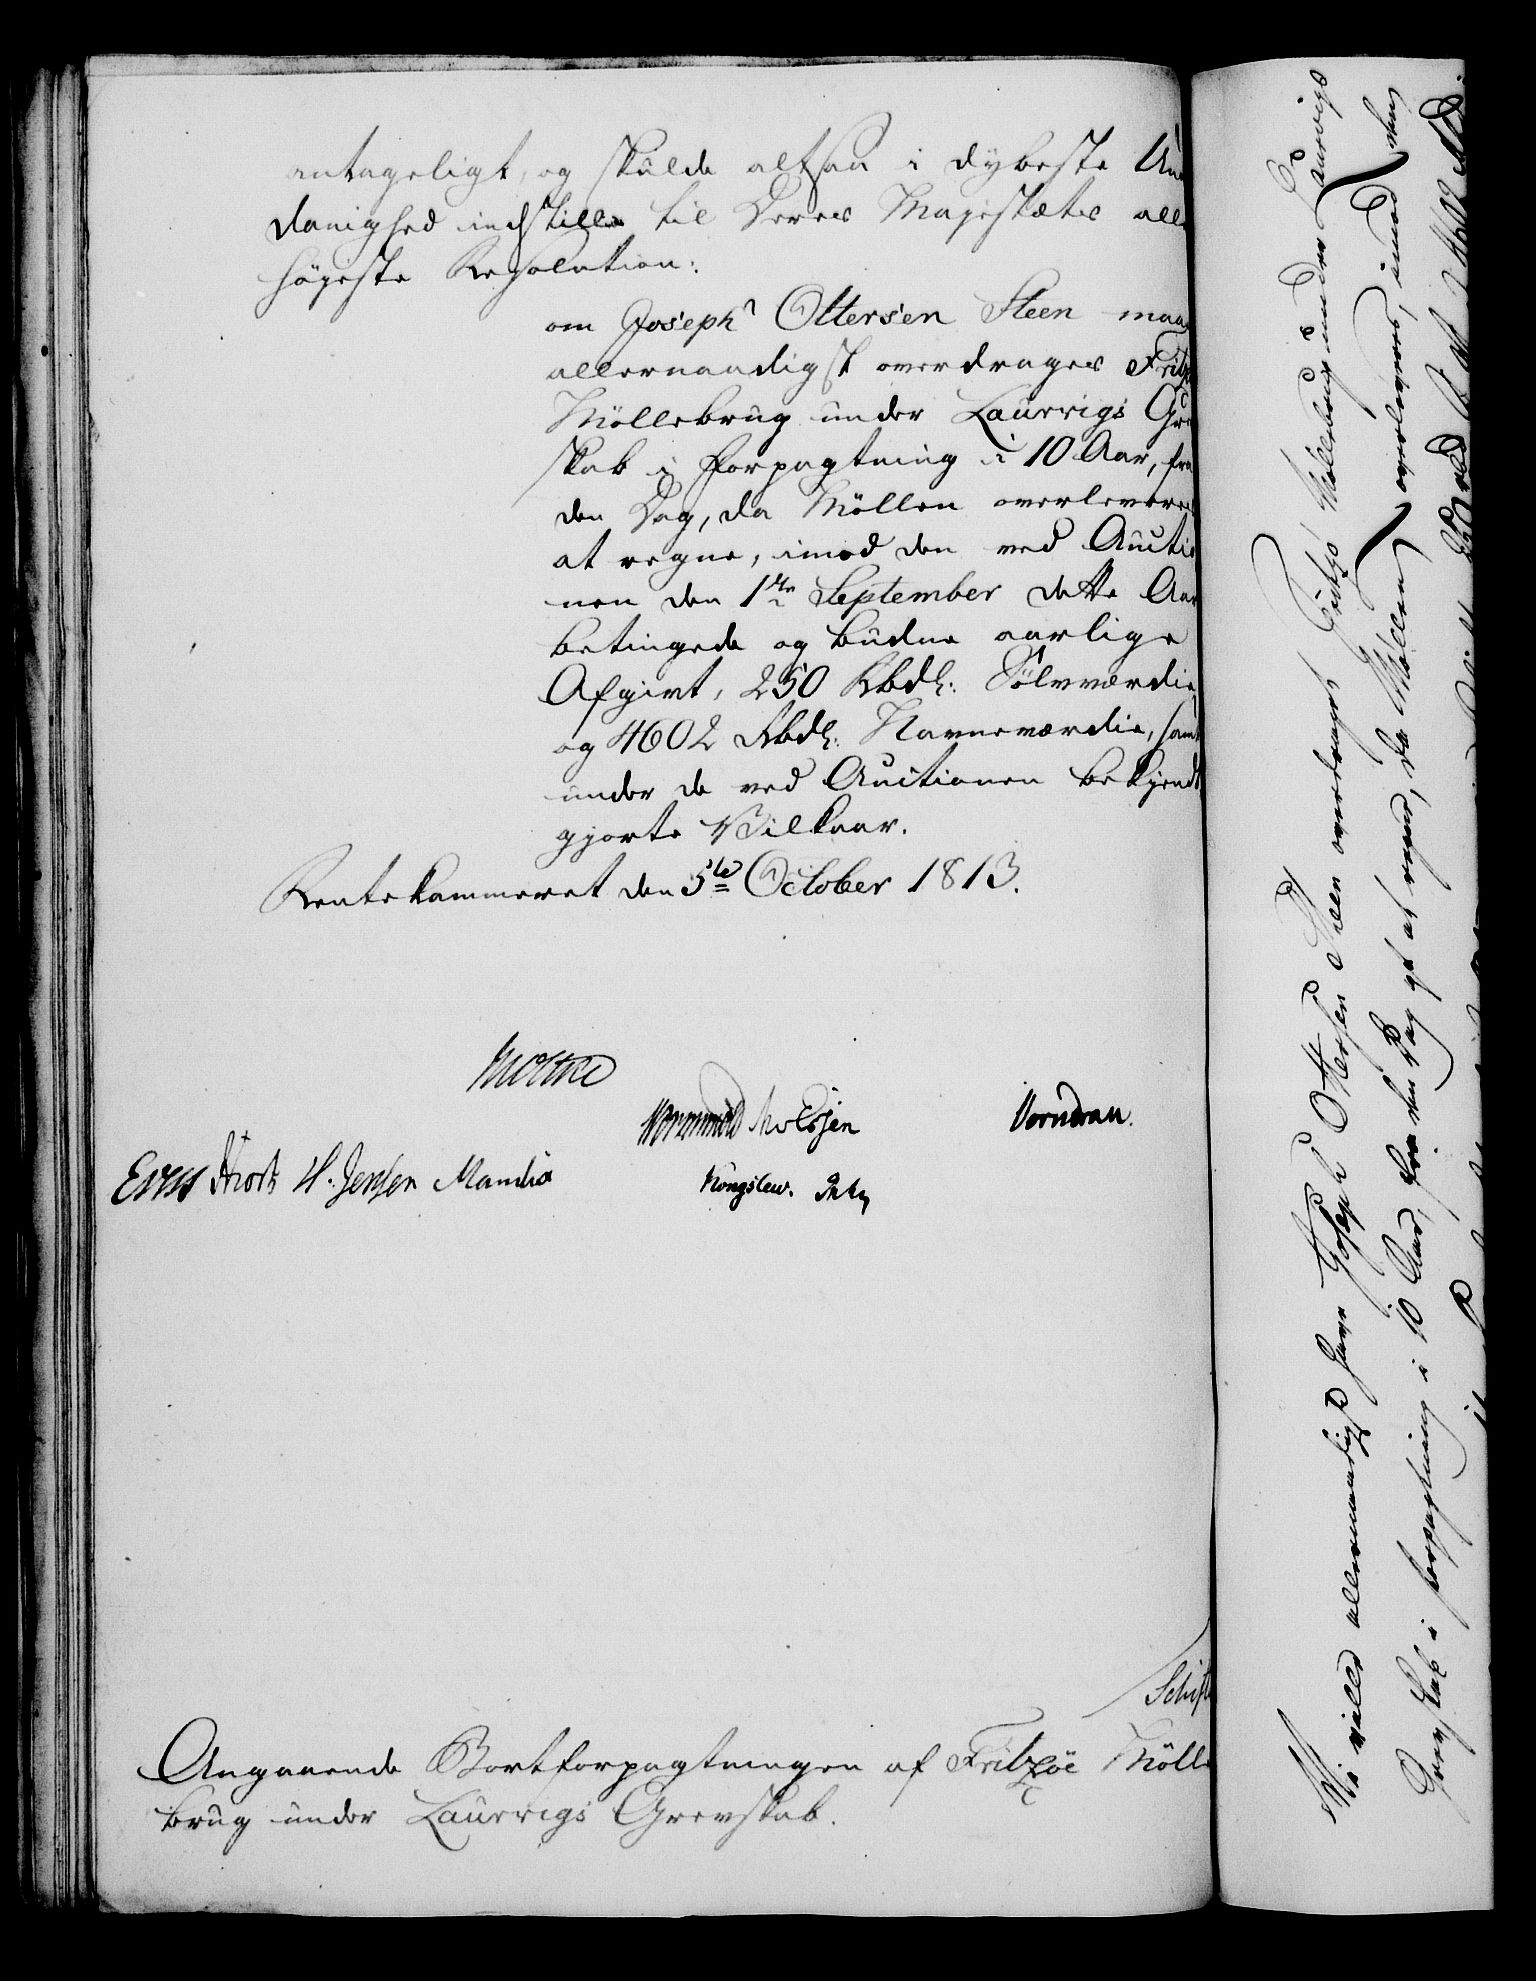 antageligt, og skulde altsaa i dybeste Un
danighed indstille til Deres Majestætes aller
højeste Resolution:
om Joseph Ottersen Steen maa
allernaadigst overdrages Fritz
Möllebrug under Laurvigs Gre
skab i Forpagtning i 10 Aar, fra
den Dag, da Möllen overleveres
at regne, imod den ved Auctio
nen den 1te September dette Aar
betingede og budne aarlige
Afgivt, 250 Rbdl: Sölvværdie,
og 4602 Rbdl: Navneværdie, samt
under de ved Auctionen bekjendt
gjorte Vilkaar.
Rentekammeret den 5te October 1813.
Moltke
Wormskiold MvEssen Vorndran.
Hiort H. Jensen Manthe
Kongslew.
Schift
Angaaende Bortforpagtningen af Fritzöe Mölle
brug under Laurvigs Grevskab.
Vi ville allernaadigst have Joseph Ottersen Steen overdraget Fritzö Möllebrug under Laurvigs
Grevskab i forpagtning i 10 Aar, fra den Dag af at regne, da Möllen overleveres, imod den